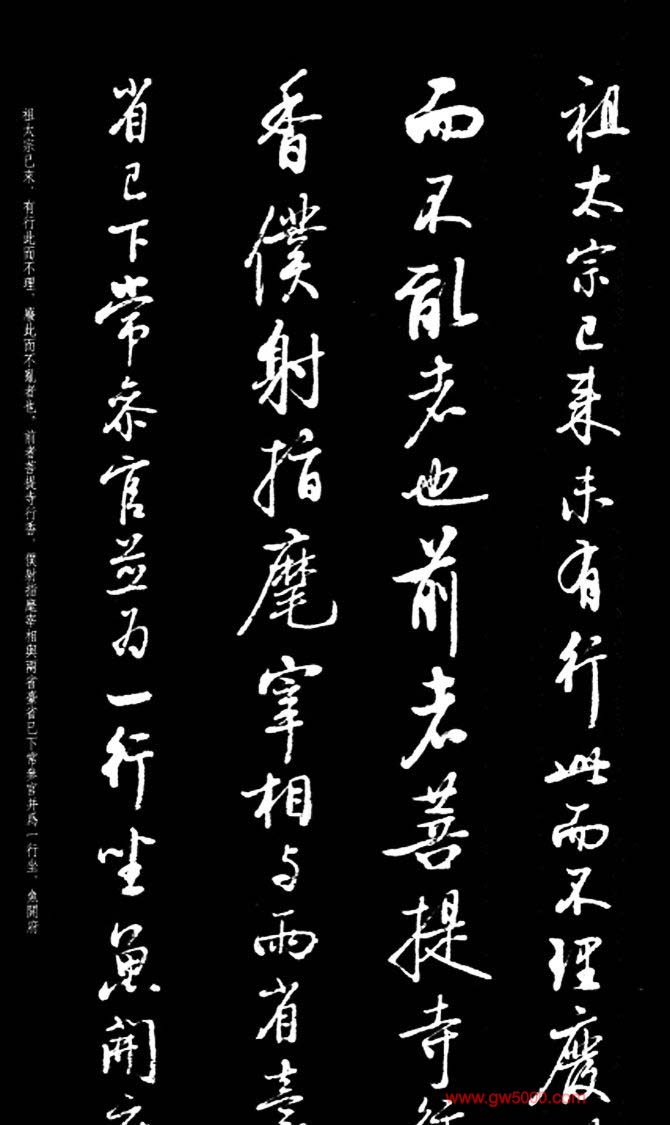 祖太宗已来未有行此而不理廢
而不亂者也前者菩提寺行
香僕射指麾宰相与兩省臺
省已下常参官並为一行坐魚開府
祖太宗已來、有行此而不理、廢此而不亂者也。前者菩提寺行香、僕射指麾宰相與兩省臺省已下常參官并爲一行坐、魚開府
www.gw5000.com